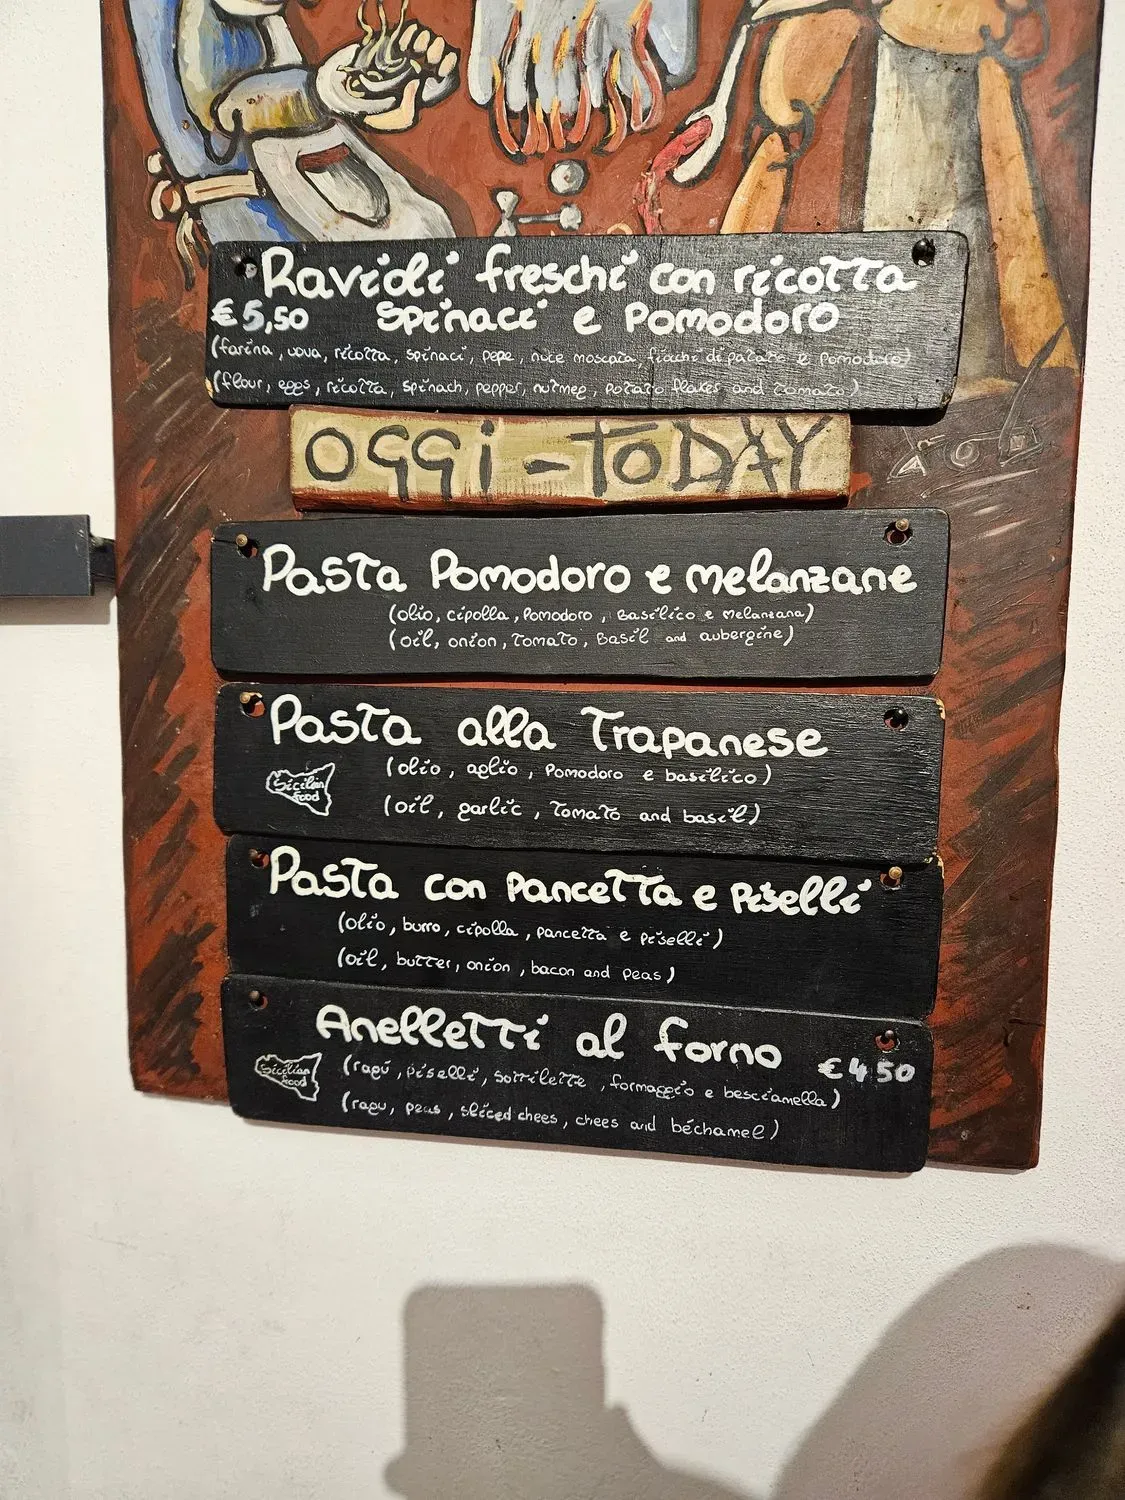 Ravioli freschi con ricotta
€5,50 Spinaci e Pomodoro
(farina, uova, ricotta, spinaci, pepe, noce moscata, fiocchi di patate e pomodoro)
(flour, eggs, ricotta, spinach, pepper, nutmeg, potato flakes and tomato)
OGGi - TODAY
Pasta Pomodoro e melanzane
(olio, cipolla, Pomodoro, Basilico e Melanzana)
(oil, onion, Tomato, Basil and aubergine)
Pasta alla Trapanese
(olio, aglio, Pomodoro e basilico)
Sicilian
food
(oil, garlic, Tomato and basil)
Pasta con pancetta e Piselli
(olio, burro, cipolla, pancetta e piselli)
(oil, butter, onion, bacon and peas)
Anelletti al forno
€4 50
(ragù, piselli, sottilette, formaggio e besciamella)
Sicilian
food
(ragu, peas, sliced chees, chees and béchamel)